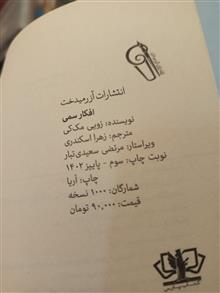 انتشارات آزرمیدخت
افکار سمی
نویسنده: زویی مک‌کی
مترجم: زهرا اسکندری
ویراستار: مرتضی سعیدی‌تبار
نوبت چاپ: سوم - پاییز ۱۴۰۲
چاپ: آریا
شمارگان: ۱۰۰۰ نسخه
قیمت: ۹۰,۰۰۰ تومان